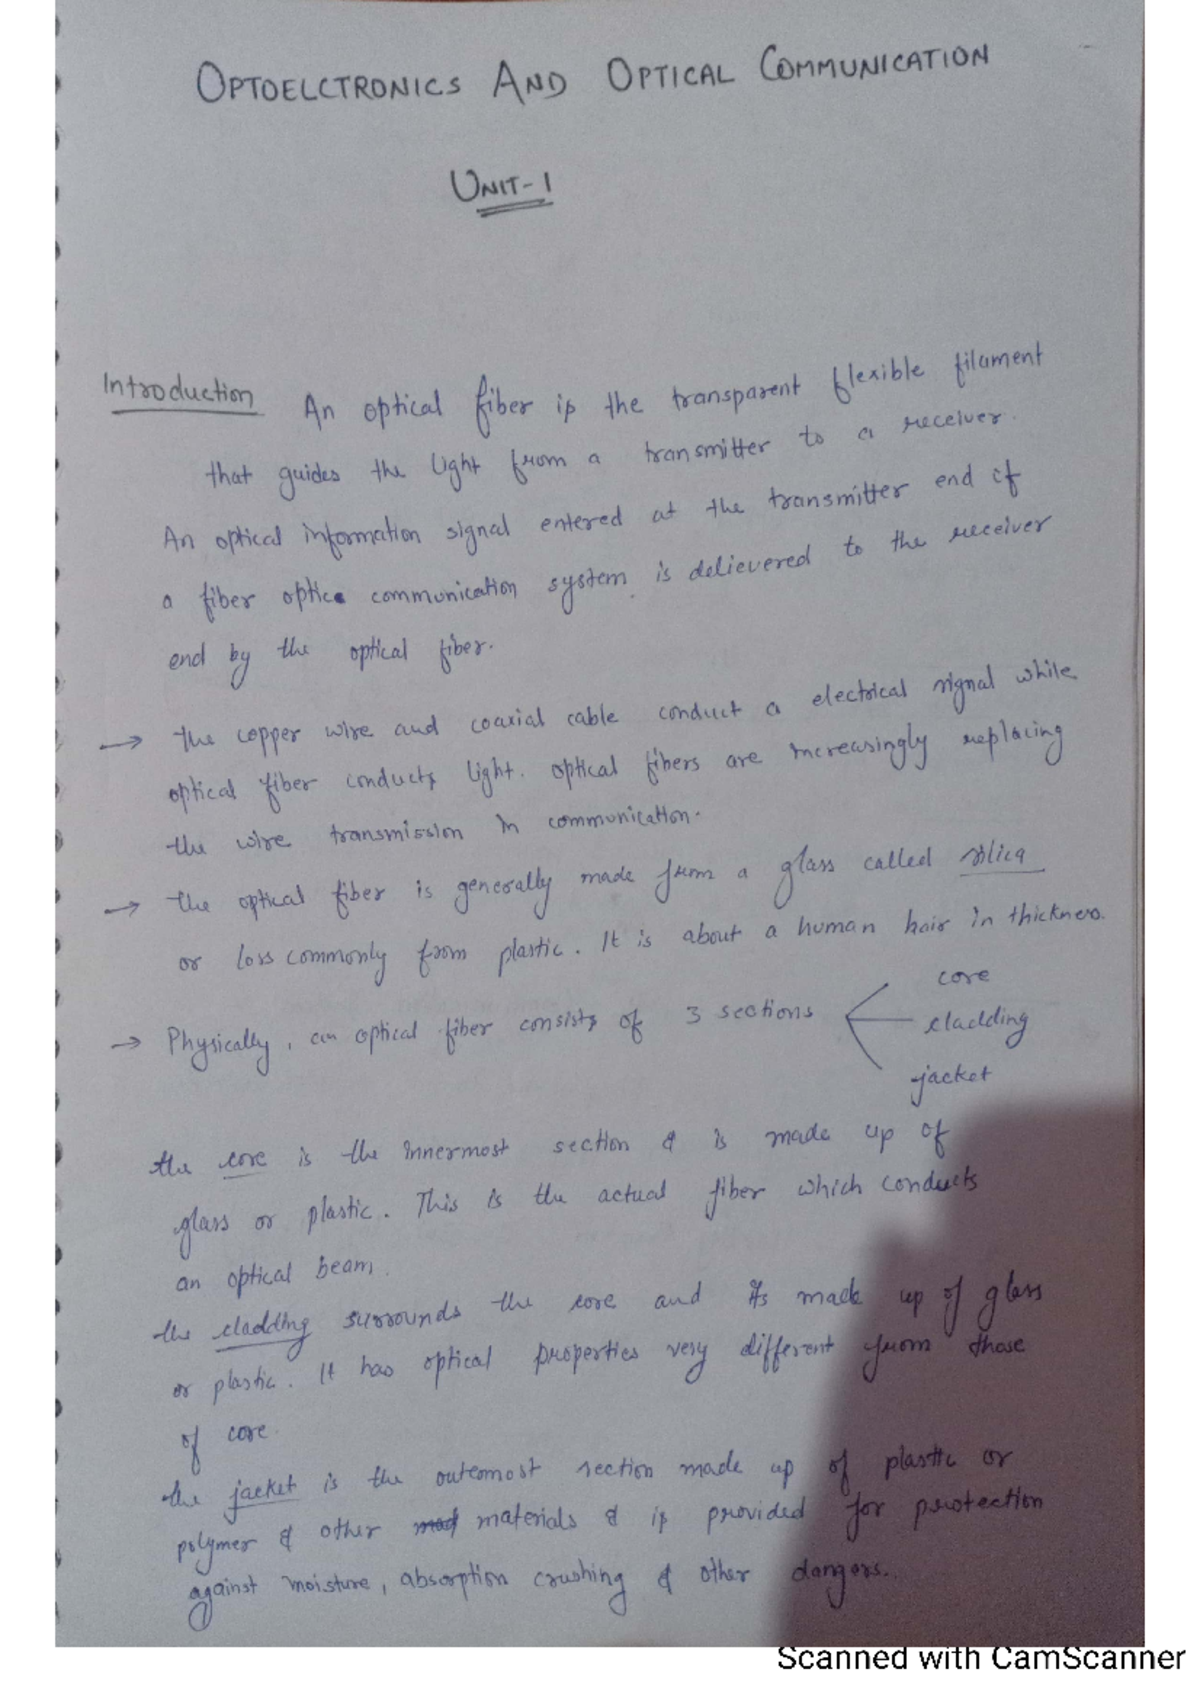 OPTOELCTRONICS AND OPTICAL COMMUNICATION
UNIT-1
Introduction An optical fiber is the transparent flexible filament
that guides the light from a transmitter to a receiver.
An optical information signal entered at the transmitter end of
a fiber optic communication system is delievered to the receiver
end by the optical fiber.
→ the copper wire and coaxial cable conduct a electrical signal while
optical fiber conducts light. optical fibers are increasingly replacing
the wire transmission in communication.
→ the optical fiber is generally made from a glass called silica
or less commonly from plastic. It is about a human hair in thickness.
→ Physically, an optical fiber consists of 3 sections
core
cladding
jacket
the core is the innermost section & is made up of
glass or plastic. This is the actual fiber which conducts
an optical beam.
the cladding surrounds the core and is made up of glass
or plastic. It has optical properties very different from those
of core.
the jacket is the outemost section made up of plastic or
polymer & other materials & is provided for protection
against moisture, absorption crushing & other dangers.
Scanned with CamScanner